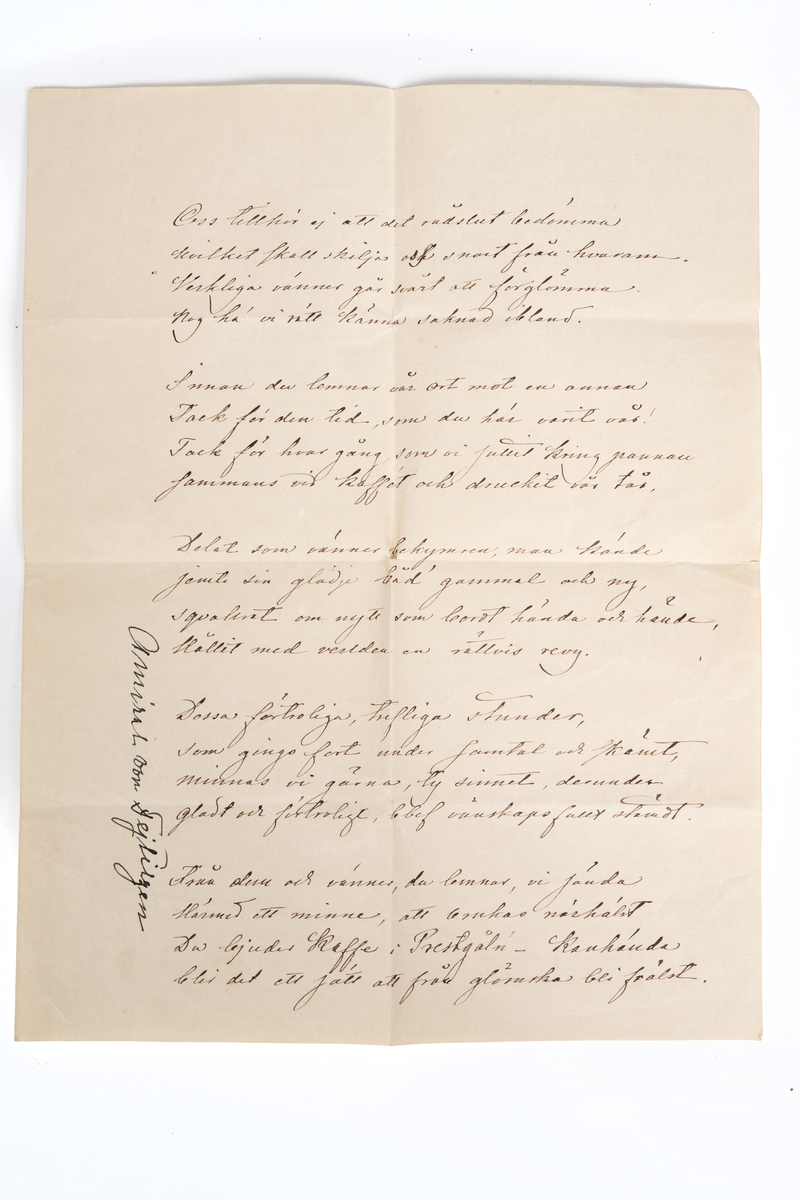 Oss tillhör ej att det rådslut bedömma
hvilket skall skilja oss snart från hvarann.
Verkliga vänner går svårt att förglömma.
Nog ha' vi rätt känna saknad ibland.
Innan du lemnar vår ort mot en annan
Tack för den tid, som du här varit vår!
Tack för hvar gång, som vi suttit kring pannan
sammans vid kaffet och druckit vår tår,
Delat som vänner bekymren, man kände
jemte sin glädje båd' gammal och ny,
sqvalrat om nytt som bordt hända och hände,
Hållit med verlden en rättvis revy.
Dessa förtroliga, trefliga stunder,
som gingo fort under samtal och skämt,
minnas vi gärna, ty sinnet, derunder
gladt och förtroligt, blef vänskapsfullt stämdt.
Från dem och vänner, du lemnar, vi sända
Härmed ett minne, att brukas närhälst
Du bjuder Kaffe i Prestgåln' – Kanhända
blir det ett sätt att från glömska bli frälst.
Amiral von Feilitzen